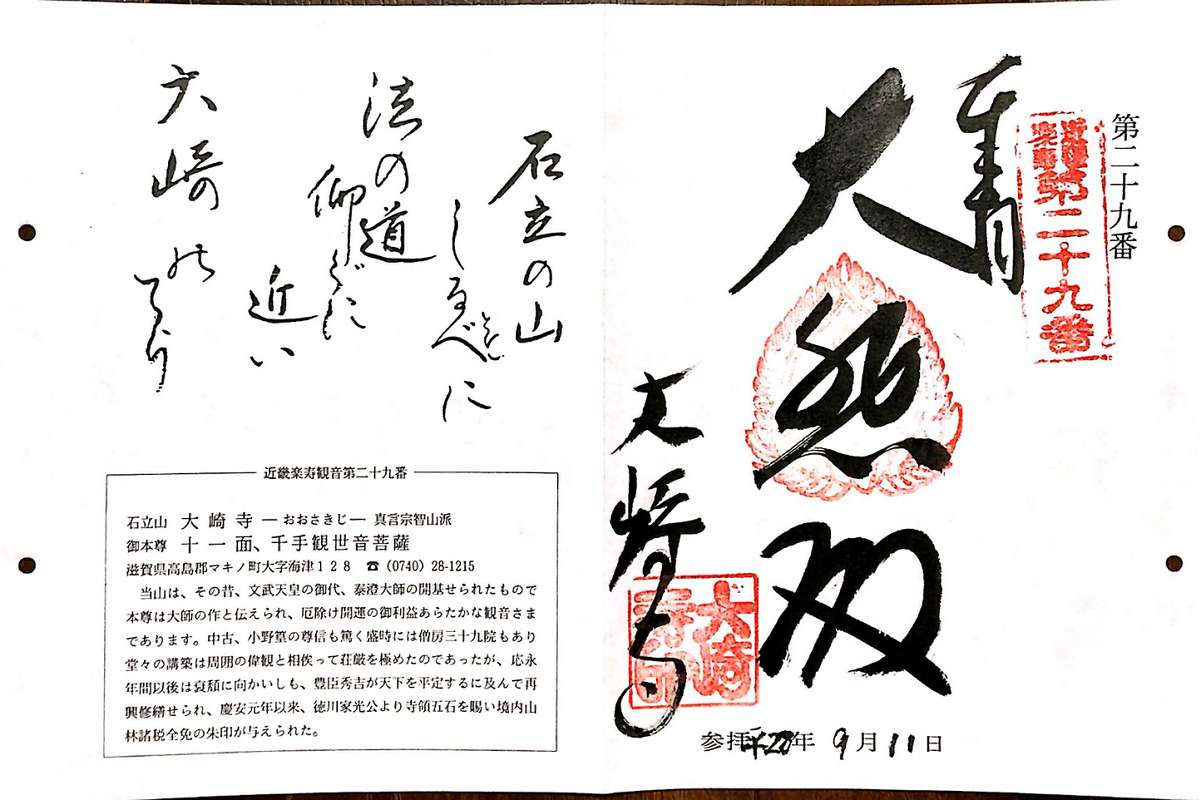 第二十九番
第二十九番
奉拝
大悲殿
大崎寺
大崎寺印
参拝 平28年 9月11日
石立の山
しるべとしに
法の道
仰ぐに
近い
大崎の
てら
近畿楽寿観音第二十九番
石立山 大崎寺 ―おおさきじ― 真言宗智山派
御本尊 十一面、千手観世音菩薩
滋賀県高島郡マキノ町大字海津128 ☎(0740)28-1215
当山は、その昔、文武天皇の御代、泰澄大師の開基せられたもので
本尊は大師の作と伝えられ、厄除け開運の御利益あらたかな観音さま
であります。中古、小野篁の尊信も篤く盛時には僧房三十九院もあり
堂々の講築は周囲の偉観と相俟って荘厳を極めたのであったが、応永
年間以後は衰頽に向かいしも、豊臣秀吉が天下を平定するに及んで再
興修繕せられ、慶安元年以来、徳川家光公より寺領五石を賜い境内山
林諸税全免の朱印が与えられた。